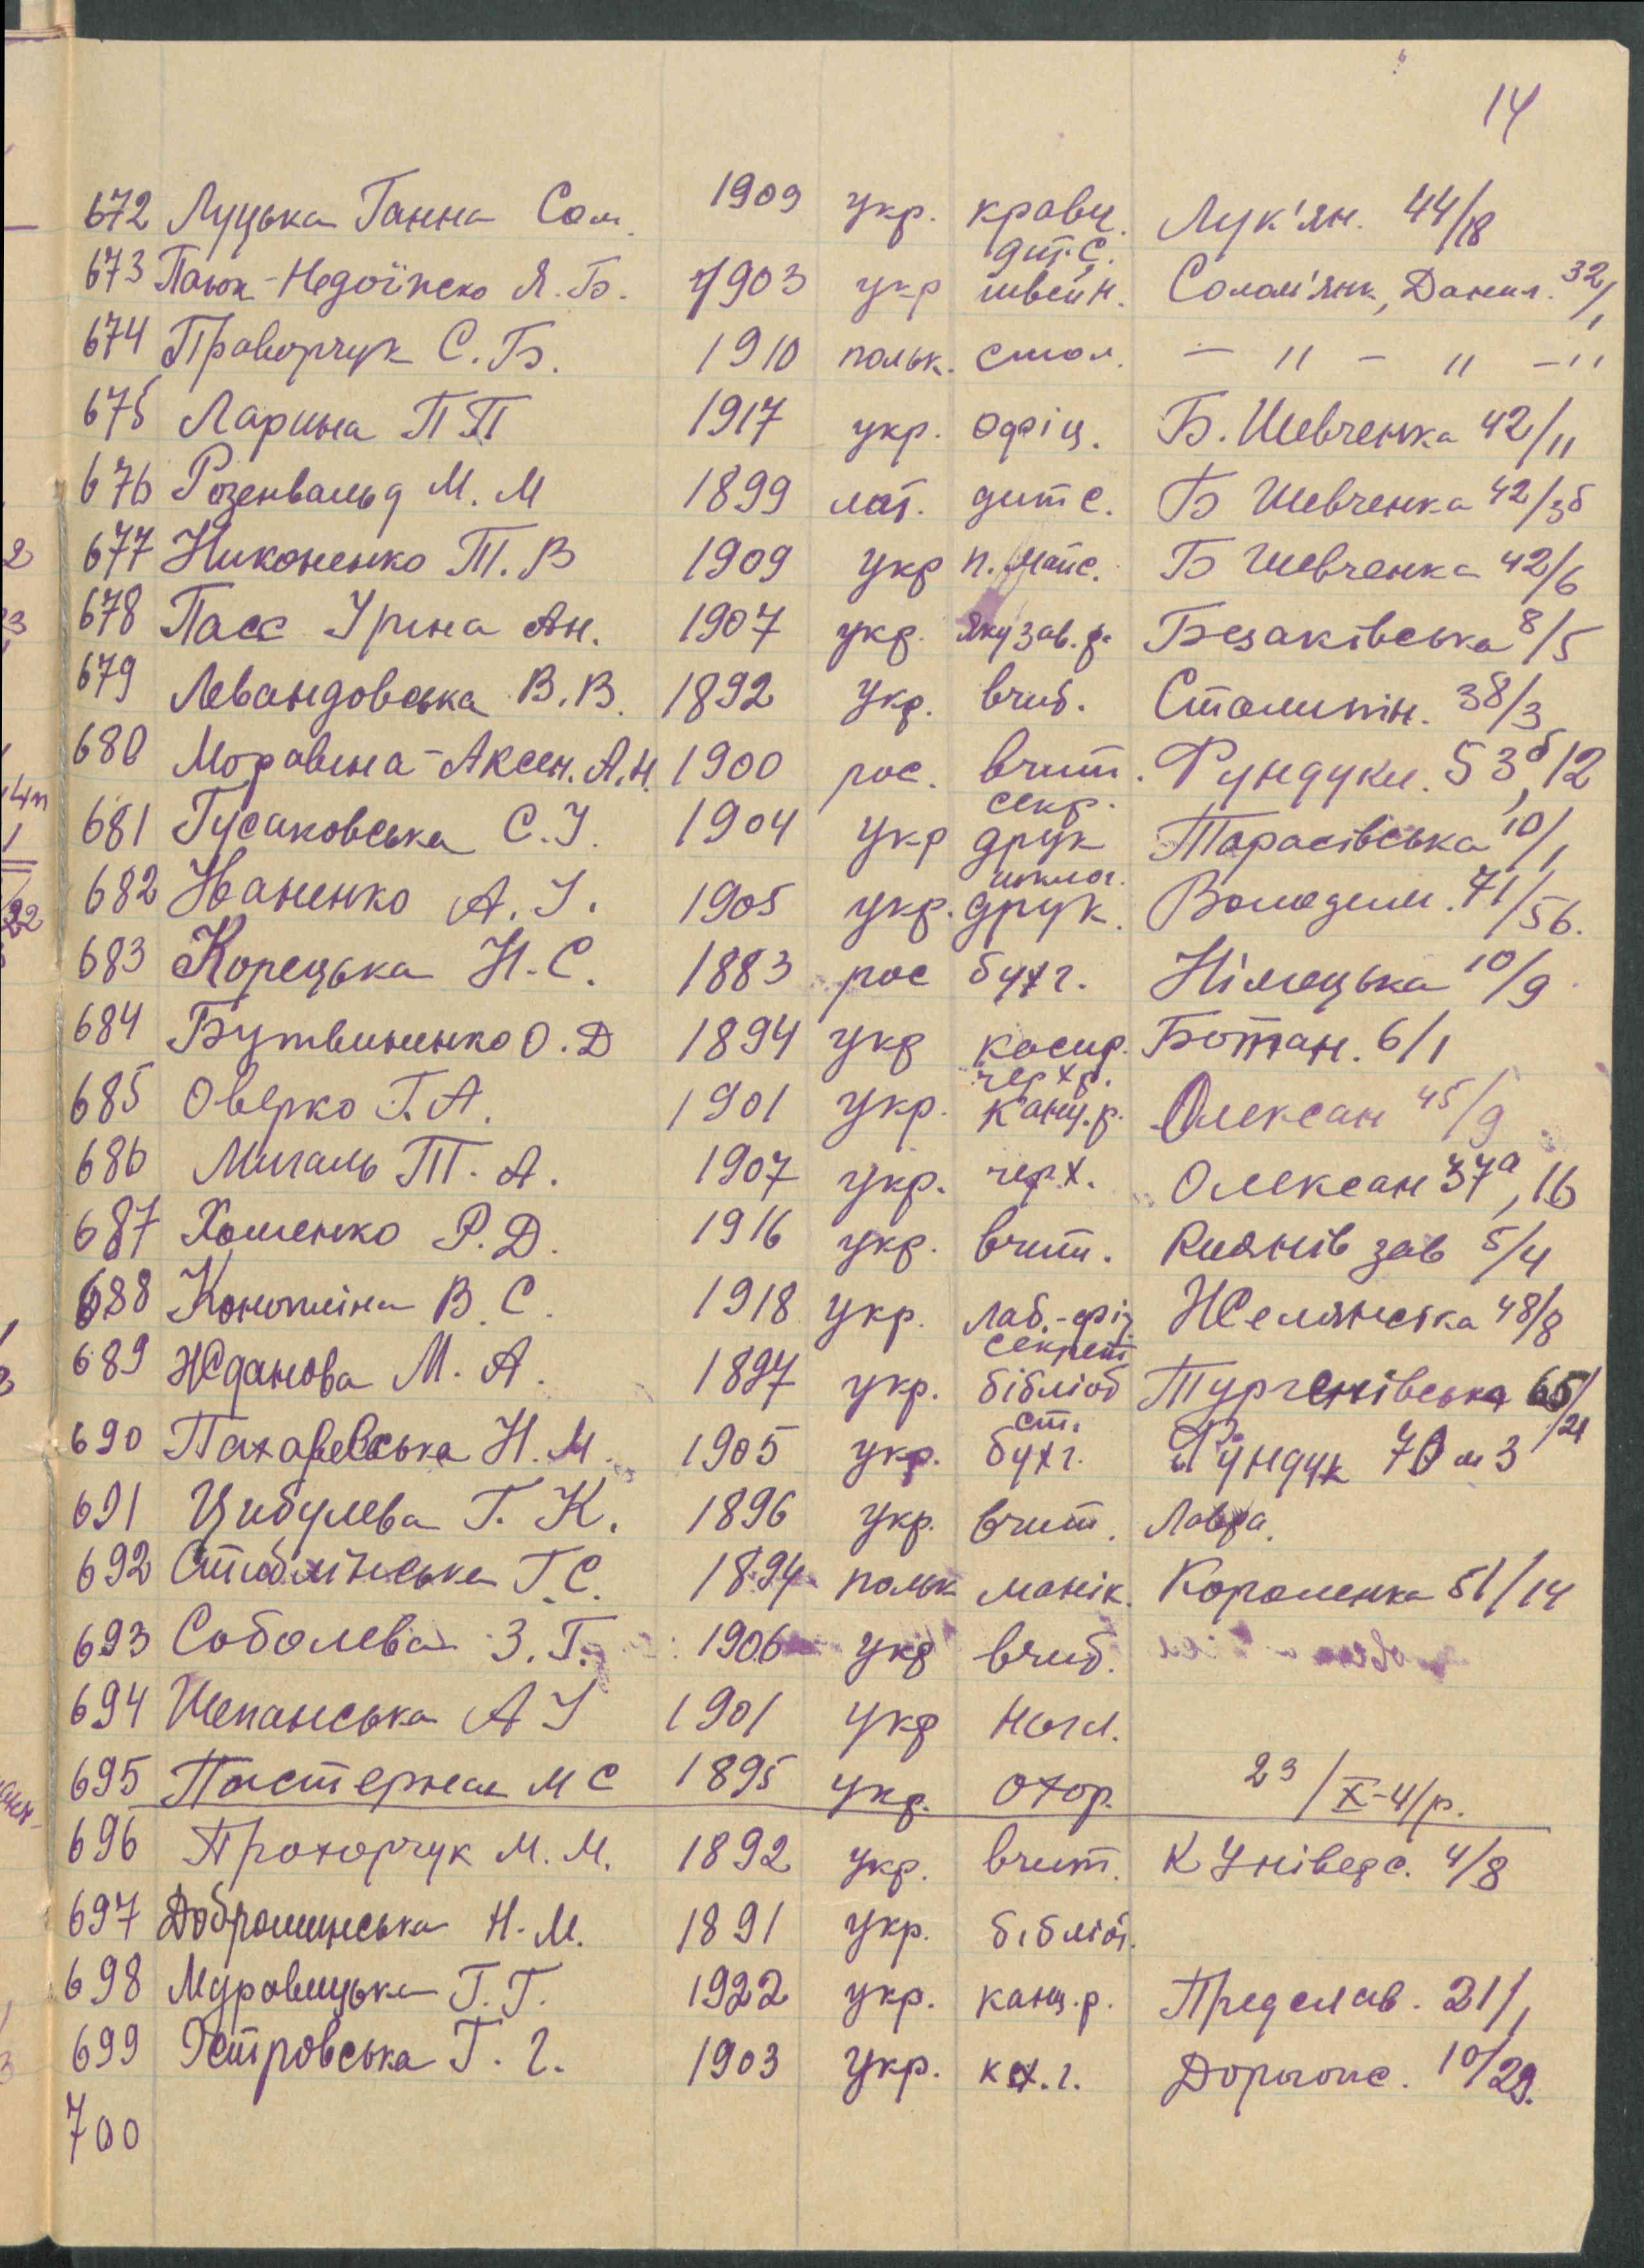 14
672 Луцька Ганна Сол. 1909 укр. кравч. Лук'ян. 44/18
673 Паюк-Недоїпско Я. Б. 1903 укр дит.с. швейн. Солом'янк, Данил. 32/1
674 Праворчук С. Б. 1910 польк. стол. — " — " — "
675 Ларина П П 1917 укр. офіц. Б. Шевченка 42/11
676 Розенвальд М. М 1899 лат. дит с. Б Шевченка 42/3б
677 Никоненко Т. В 1909 укр п. майс. Б Шевченка 42/6
678 Пасс Ірина Ан. 1907 укр. зав. Безаківська 8/5
679 Левандовська В. В. 1892 укр. вчит. Столипін. 38/3
680 Моравина-Аксен. А. Н. 1900 рос. вчит. Фундукл. 53б, 12
681 Гусаковська С. І. 1904 укр секр. друк Тарасівська 10/1
682 Іваненко А. І. 1905 укр. друк. Володим. 71/56.
683 Корецька Н. С. 1883 рос бухг. Німецька 10/9
684 Бутвиненко О. Д 1894 укр касир. Ботан. 6/1
685 Оверко Г. А. 1901 укр. черхр. канц. р. Олексан 45/9
686 Мигаль Т. А. 1907 укр. черх. Олексан 37а, 16
687 Хоменко Р. Д. 1916 укр. вчит. Киянів зав 5/4
688 Конопліна В. С. 1918 укр. лаб.-фіз Желянська 48/8
689 Жданова М. А. 1897 укр. секрет бібліоб Тургенівська 65/21
690 Пахаревська Н. М. 1905 укр. ст. бухг. Фундук 70 м 3
691 Цибулева Г. К. 1896 укр. вчит. Лавра.
692 Стеблінська Г. С. 1894 польк манік. Короленка 51/14
693 Соболева З. Г. 1906 укр вчит.
694 Шепанська А І 1901 укр нагл.
695 Пастернак М С 1895 укр. охор. 23/X-41р.
696 Прохорчук М. М. 1892 укр. вчит. К Універс. 4/8
697 Добролинська Н. М. 1891 укр. бібліот.
698 Муравицька Г. Г. 1922 укр. канц. р. Предслав. 21/1
699 Островська Г. г. 1903 укр. Дорогож. 10/29.
700